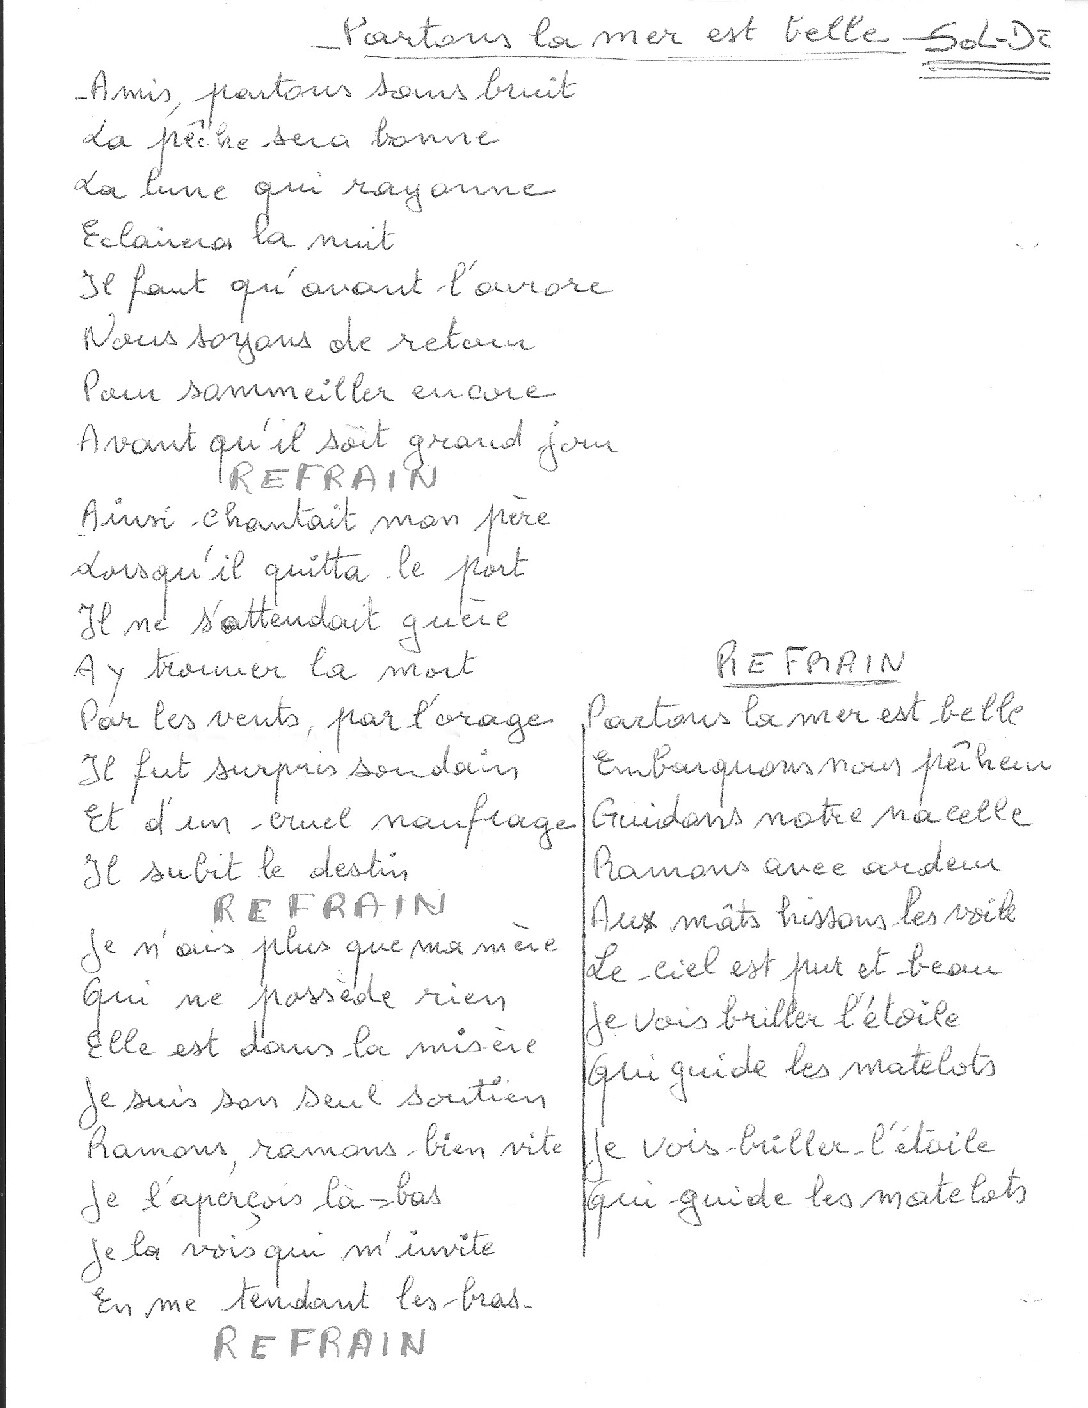 Partons la mer est belle SOL-DE
Amis, partons sans bruit
La pêche sera bonne
La lune qui rayonne
Eclairera la nuit
Il faut qu'avant l'aurore
Nous soyons de retour
Pour sommeiller encore
Avant qu'il soit grand jour
REFRAIN
Ainsi chantait mon père
Lorsqu'il quitta le port
Il ne s'attendait guère
A y trouver la mort
Par les vents, par l'orage
Il fut surpris soudain
Et d'un cruel naufrage
Il subit le destin
REFRAIN
Je n'ais plus que ma mère
Qui ne possède rien
Elle est dans la misère
Je suis son seul soutien
Ramons, ramons bien vite
Je l'aperçois là-bas
Je la vois qui m'invite
En me tendant les bras.
REFRAIN
REFRAIN
Partons la mer est belle
Embarquons nous pêcheur
Guidons notre nacelle
Ramons avec ardeur
Aux mâts hissons les voile
Le ciel est pur et beau
Je vois briller l'étoile
Qui guide les matelots
Je vois briller l'étoile
Qui guide les matelots